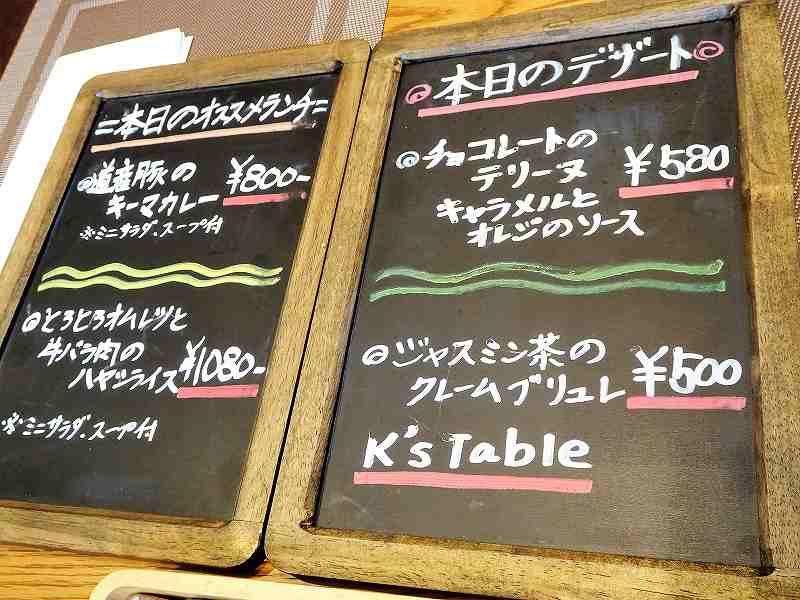 =本日のオススメランチ=
◎道産豚の
キーマカレー ¥800-
※ミニサラダ、スープ付
◎とろとろオムレツと
牛バラ肉の
ハヤシライス ¥1080-
※ミニサラダ、スープ付
本日のデザート
◎チョコレートの
テリーヌ ¥580
キャラメルと
オレンジのソース
◎ジャスミン茶の
クレームブリュレ ¥500
K's Table